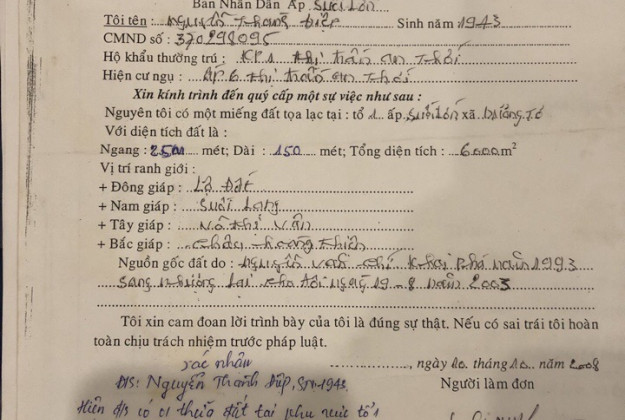 Ban Nhân Dân Ấp Suối Lớn
Tôi tên : Nguyễn Thanh Điệp Sinh năm 1943
CMND số : 370298095
Hộ khẩu thường trú : KP 1 thị trấn an thới
Hiện cư ngụ : ấp 6 thị trấn an thới
Xin kính trình đến quý cấp một sự việc như sau :
Nguyên tôi có một miếng đất tọa lạc tại : tổ 1 ấp Suối Lớn xã Dương Tơ
Với diện tích đất là :
Ngang : mét; Dài : 150 mét; Tổng diện tích : 6000 m²
Vị trí ranh giới :
+ Đông giáp : Lộ Đất
+ Nam giáp : Suối
+ Tây giáp : Võ Thị Vân
+ Bắc giáp : Châu Hoàng Thiên
Nguồn gốc đất do : Nguyễn văn chí Khai Phá năm 1993
Sang nhượng lại cho tôi ngày 19 - 8 năm 2003
Tôi xin cam đoan lời trình bày của tôi là đúng sự thật. Nếu có sai trái tôi hoàn
toàn chịu trách nhiệm trước pháp luật.
xác nhận , ngày 10 tháng 10 năm 2008
Đ/S: Nguyễn Thanh Điệp, Sn-1943 Người làm đơn
Hiện đ/s có 01 thửa đất tại khu vực tổ 1